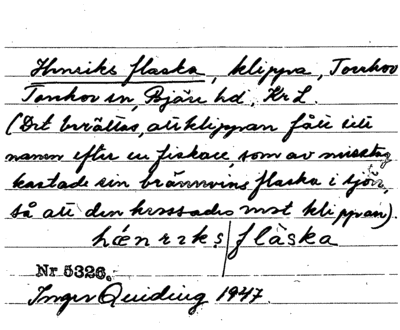 Henriks flaska, klippa, Torekov
Torekov sn, Bjäre hd, Kr L.
(Det berättas, att klippan fått sitt
namn efter en fiskare, som av misstag
kastade sin brännvinsflaska i sjön,
så att den krossades mot klippan).
hǽnrɪks/flàska
Nr 5326.
Inger Quiding 1947.